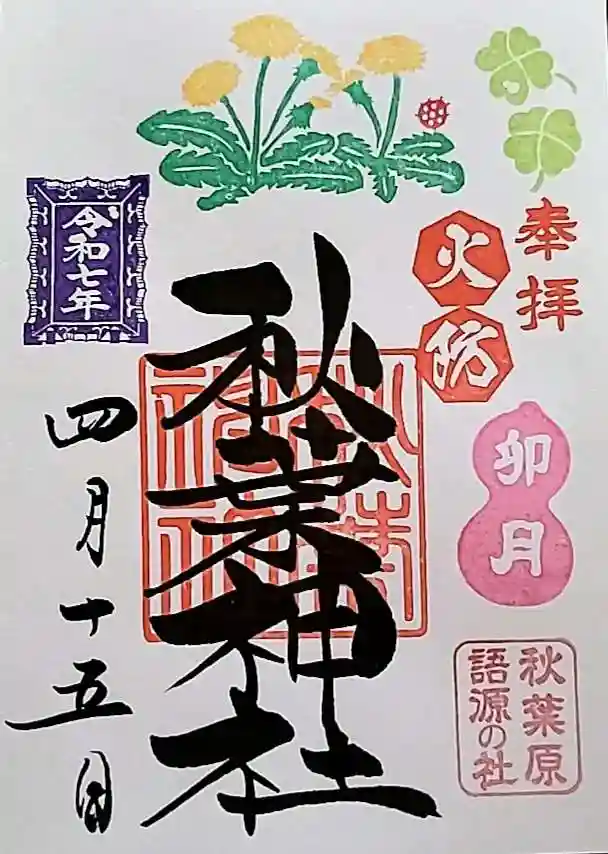 奉拝
火防
卯月
秋葉原
語源の社
秋葉神社
令和七年
四月十五日